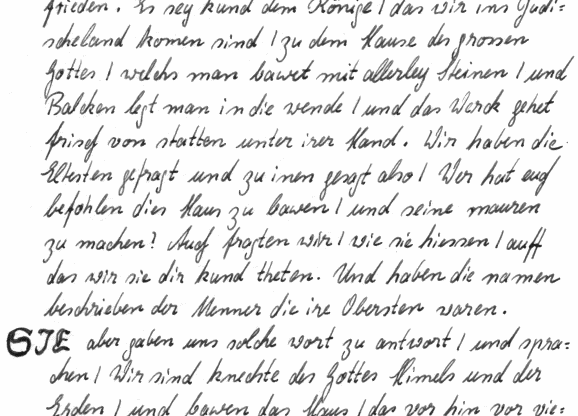 frieden. Es sey kund dem Könige / das wir ins Jüdi=
scheland komen sind / zu dem Hause des grossen
Gottes / welchs man bawet mit allerley Steinen / und
Balcken legt man in die wende / und das Werck gehet
frisch von statten unter irer Hand. Wir haben die
Eltesten gefragt und zu inen gesagt also / Wer hat euch
befohlen dies Haus zu bawen / und seine mauren
zu machen? Auch fragten wir / wie sie hiessen / auff
das wir sie dir kund theten. Und haben die namen
beschrieben der Menner die ire Obersten waren.
SIE aber gaben uns solche wort zu antwort / und spra=
chen / Wir sind knechte des Gottes Himels und der
Erden / und bawen das Haus / das vor hin vor vie=